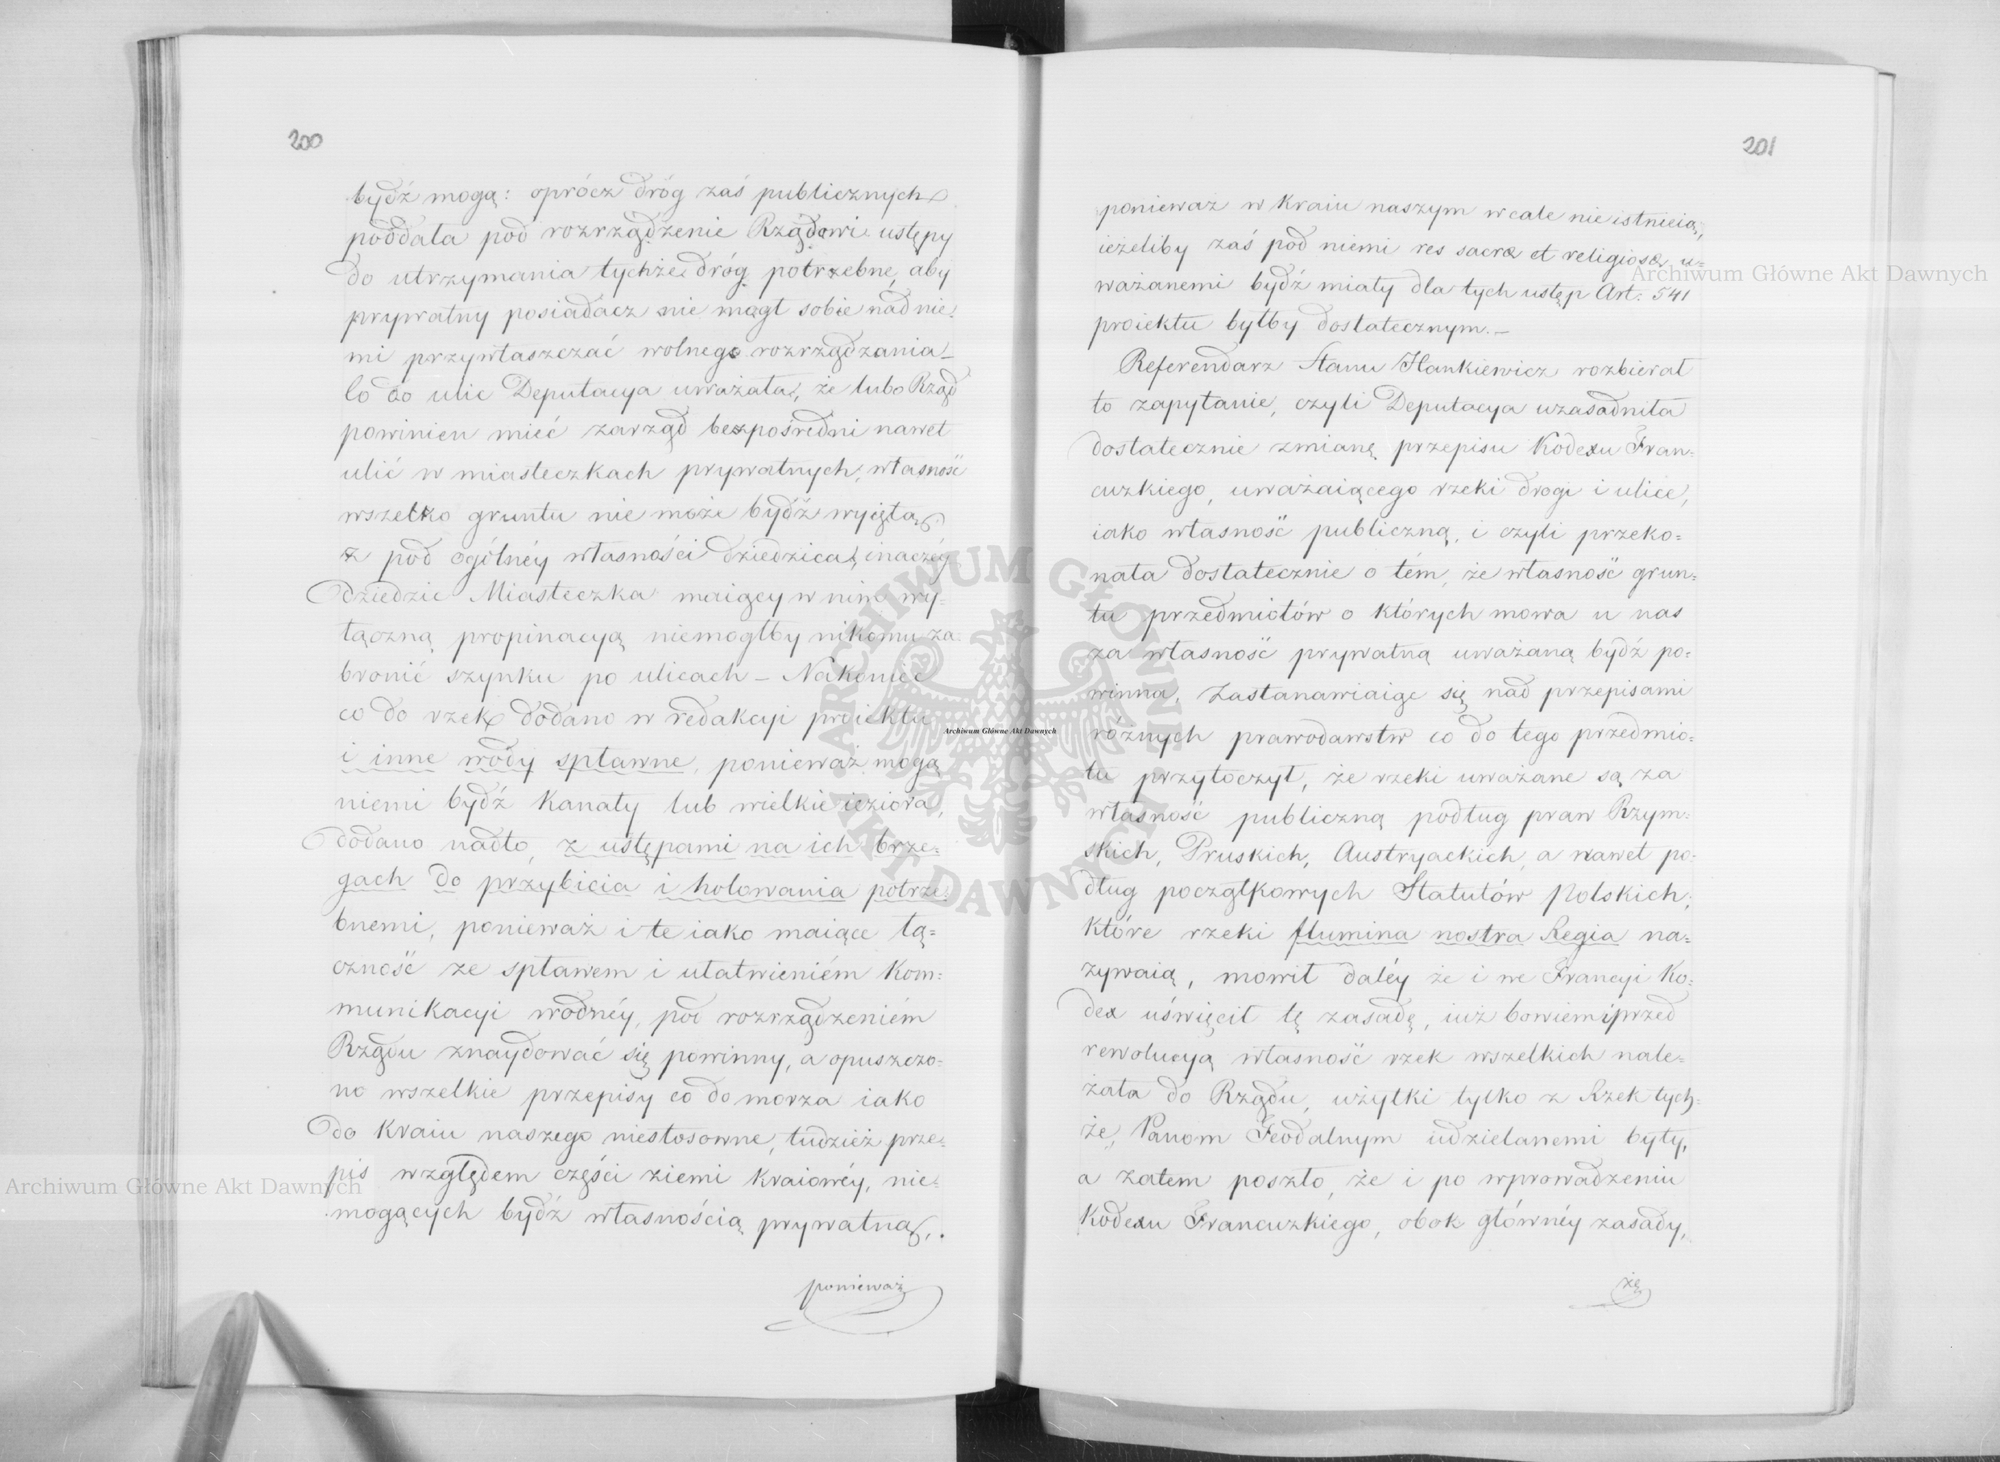 200
bydź mogą: oprócz dróg zaś publicznych
poddała pod rozrządzenie Rządowi ustępy
do utrzymania tychże dróg potrzebne, aby
prywatny posiadacz nie mógł sobie nad nie-
mi przywłaszczać wolnego rozrządzania –
Co do ulic Deputacya uważała, że lubo Rząd
powinien mieć zarząd bezpośredni nawet
ulic w miasteczkach prywatnych, własność
wszelko gruntu nie może bydź wyjęta
z pod ogólnéy własności dziedzica, inaczéy
Dziedzic Miasteczka maiący w nim wy-
łączną propinacyą niemogłby nikomu za-
bronić szynku po ulicach – Nakoniec
co do rzek dodano w redakcyi proiektu
i inne wody spławne, ponieważ mogą
niemi bydź Kanały lub wielkie ieziora,
dodano nadto, z ustępami na ich brze-
gach do przybicia i holowania potrze-
bnemi, ponieważ i te iako maiące łą-
czność ze spławem i ułatwieniém Kom-
munikacyi wodnéy, pod rozrządzeniém
Rządu znaydować się powinny, a opuszczo-
no wszelkie przepisy co do morza iako
do Kraiu naszego niestosowne, tudzież prze-
pis względem części ziemi Kraiowéy, nie-
mogących bydź własnością prywatną,
ponieważ
201
ponieważ w Kraiu naszym wcale nie istnieią,
ieżeliby zaś pod niemi res sacræ et religiosæ u-
ważanemi bydź miały dla tych ustęp Art. 541
proiektu byłby dostatecznym. –
Referendarz Stanu Hankiewicz rozbierał
to zapytanie, czyli Deputacya uzasadniła
dostatecznie zmianę przepisu Kodexu Fran-
cuzkiego, uważaiącego rzeki drogi i ulice,
iako własność publiczną, i czyli przeko-
nała dostatecznie o tém, że własność grun-
tu przedmiotów o których mowa u nas
za własność prywatną uważaną bydź po-
winna. Zastanawiaiąc się nad przepisami
różnych prawodawstw co do tego przedmio-
tu przytoczył, że rzeki uważane są za
własność publiczną podług praw Rzym-
skich, Pruskich, Austryackich, a nawet po-
dług początkowych Statutów Polskich,
które rzeki flumina nostra Regia na-
zywaią, mowił daléy że i we Francyi Ko-
dex uświęcił tę zasadę, iuż bowiem przed
rewolucyą własność rzek wszelkich nale-
żała do Rządu, użytki tylko z Rzek tych-
że, Panom Feodalnym udzielanemi były,
a zatem poszło, że i po wprowadzeniu
Kodexu Francuzkiego, obok głównéy zasady,
że
Archiwum Główne Akt Dawnych
Archiwum Główne Akt Dawnych
Archiwum Główne Akt Dawnych
ARCHIWUM GŁÓWNE AKT DAWNYCH